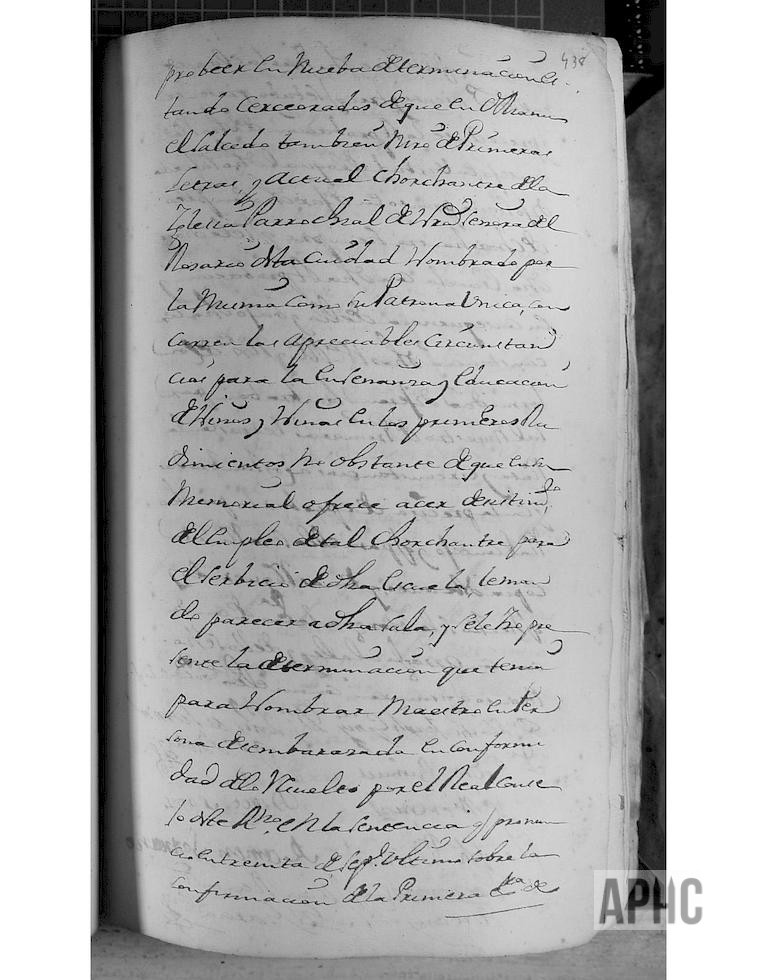 438
probeer en Nueba determinacion es-
tando Cerceorados de que en Dho Manu
el Salcedo tambien Mro de Primeras
Letras, y actual Chorchantre de la
Iglecia Parrochial de Nra Señora del
Rosario desta Ciudad Nombrado por
la Misma como su Patrona Unica, con
curren las apreciables Circunstan
cias para la Enseñanza y Educacion
de Niños y Niñas en los primeros Ru
dimientos no obstante de que en su
Memorial ofrece acer desistimto
del Empleo de tal Chorchantre para
el Serbicio de dha Escuela, leman
do parecer a dha Sala, y se le Hizo pre
sente la determinacion que tenia
para Nombrar Maestro en Per
sona desembarazada en conformi
dad de lo Resuelto por el Real Conse
jo deste Rno, en la Sentencia q pronun
cio en treinta de Sepe Ultimo sobre la
confirmacion de la Primera Cta de
APHC